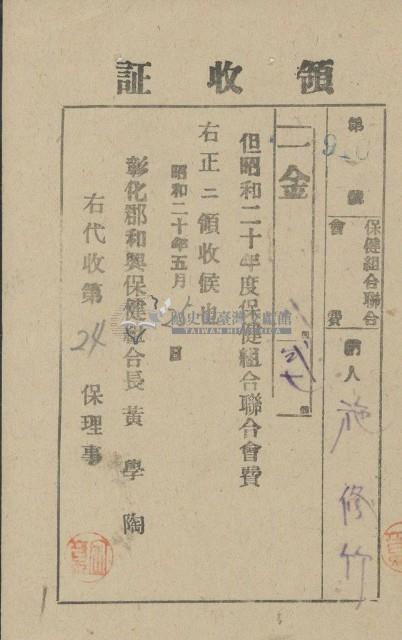 領收証
第 號
保健組合聯合會費
納人 施修竹
一金
但昭和二十年度保健組合聯合會費
右正ニ領收候也
昭和二十年五月 日
彰化郡和興保健組合長 黃學陶
右代收第24保理事
國史館臺灣文獻館
TAIWAN HISTORICA